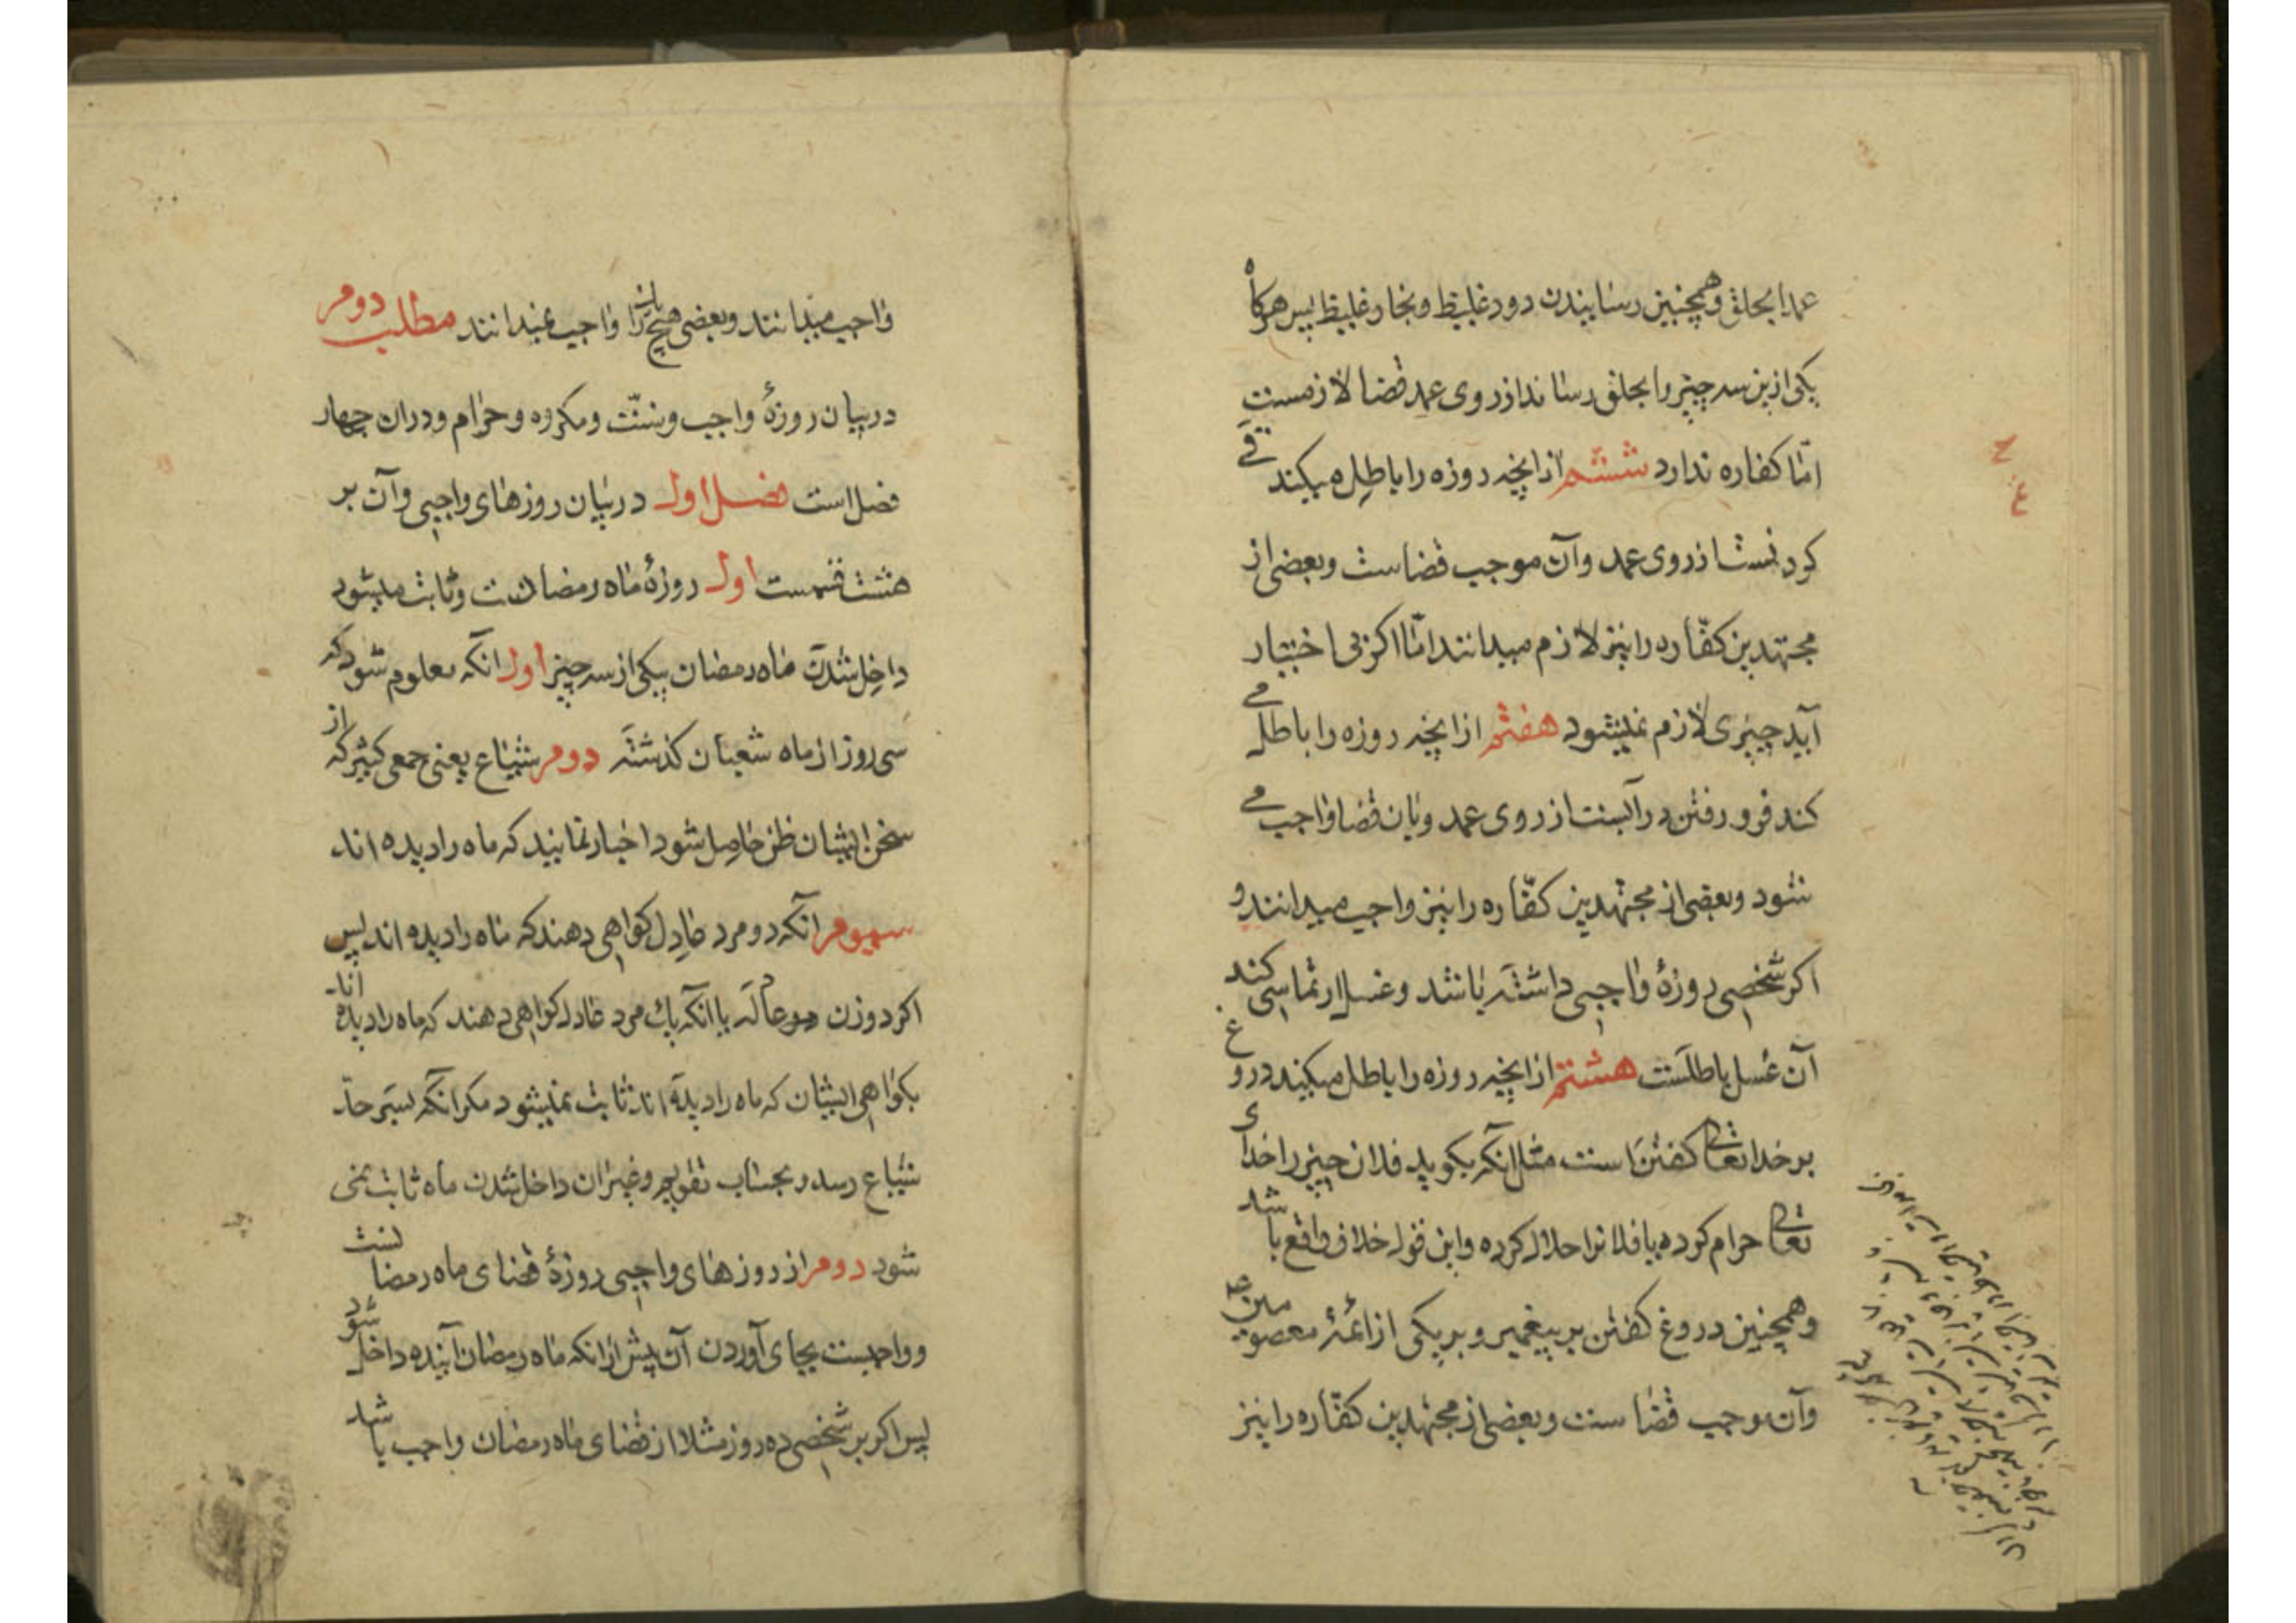 عمدا بحلق وهمچنین رسانیدن دود غلیظ وبخار غلیظ پس هرکاه
یکی ازین سه چیز را بحلق رساند از روی عمد قضا لازمست
امّا کفاره ندارد ششم از انچه روزه را باطل میکند قے
کردنست از روی عمد وآن موجب قضاست وبعضی از
مجتهدین کفّاره را نیز لازم میدانند امّا اکر بی اختیار
آید چیزی لازم نمیشود هفتم از انچه روزه را باطل مے
کند فرو رفتن در آبست از روی عمد وبان قضا واجب مے
شود وبعضی از مجتهدین کفّاره را نیز واجب میدانند و
اکر شخصی روزهٔ واجبی داشته باشد وغسل ارتماسی کند
آن غسل باطلست هشتم از انچه روزه را باطل میکند دروغ
بر خدا تعالی کفتن است مثل انکه بکوید فلان چیز را خدای
تعالی حرام کرده یا فلانرا حلال کرده واین قول خلاف واقع باشد
وهمچنین دروغ کفتن بر پیغمبر وبر یکی از ائمّهٔ معصومین
وآن موجب قضا ست وبعضی از مجتهدین کفّاره را نیز
واجب میدانند وبعضی هیچ یک را واجب نمیدانند مطلب دوم
در بیان روزهٔ واجب وسنّت ومکروه وحرام ودران چهار
فصل است فصل اول در بیان روزهای واجبی وآن بر
هشت قسمست اول روزهٔ ماه رمضانت وثابت میشود
داخل شدن ماه رمضان بیکی از سه چیز اول انکه معلوم شود که
سی روز از ماه شعبان کذشته دوم شیاع یعنی جمعی کثیر که از
سخن ایشان ظن حاصل شود اخبار نمایند که ماه را دیده اند
سیوم انکه دو مرد عادل کواهی دهند که ماه را دیده اند پس
اکر دو زن عادله یا انکه یك مرد عادل کواهی دهند که ماه را دیده اند
بکواهی ایشان که ماه را دیده اند ثابت نمیشود مکر انکه بسر حد
شیاع رسد وبحساب تقویم وغیر ان داخل شدن ماه ثابت نمی
شود دوم از روزهای واجبی روزهٔ قضای ماه رمضانست
وواجبست بجای آوردن آن پیش از انکه ماه رمضان آینده داخل شود
پس اکر بر شخصی ده روز مثلا از قضای ماه رمضان واجب باشد